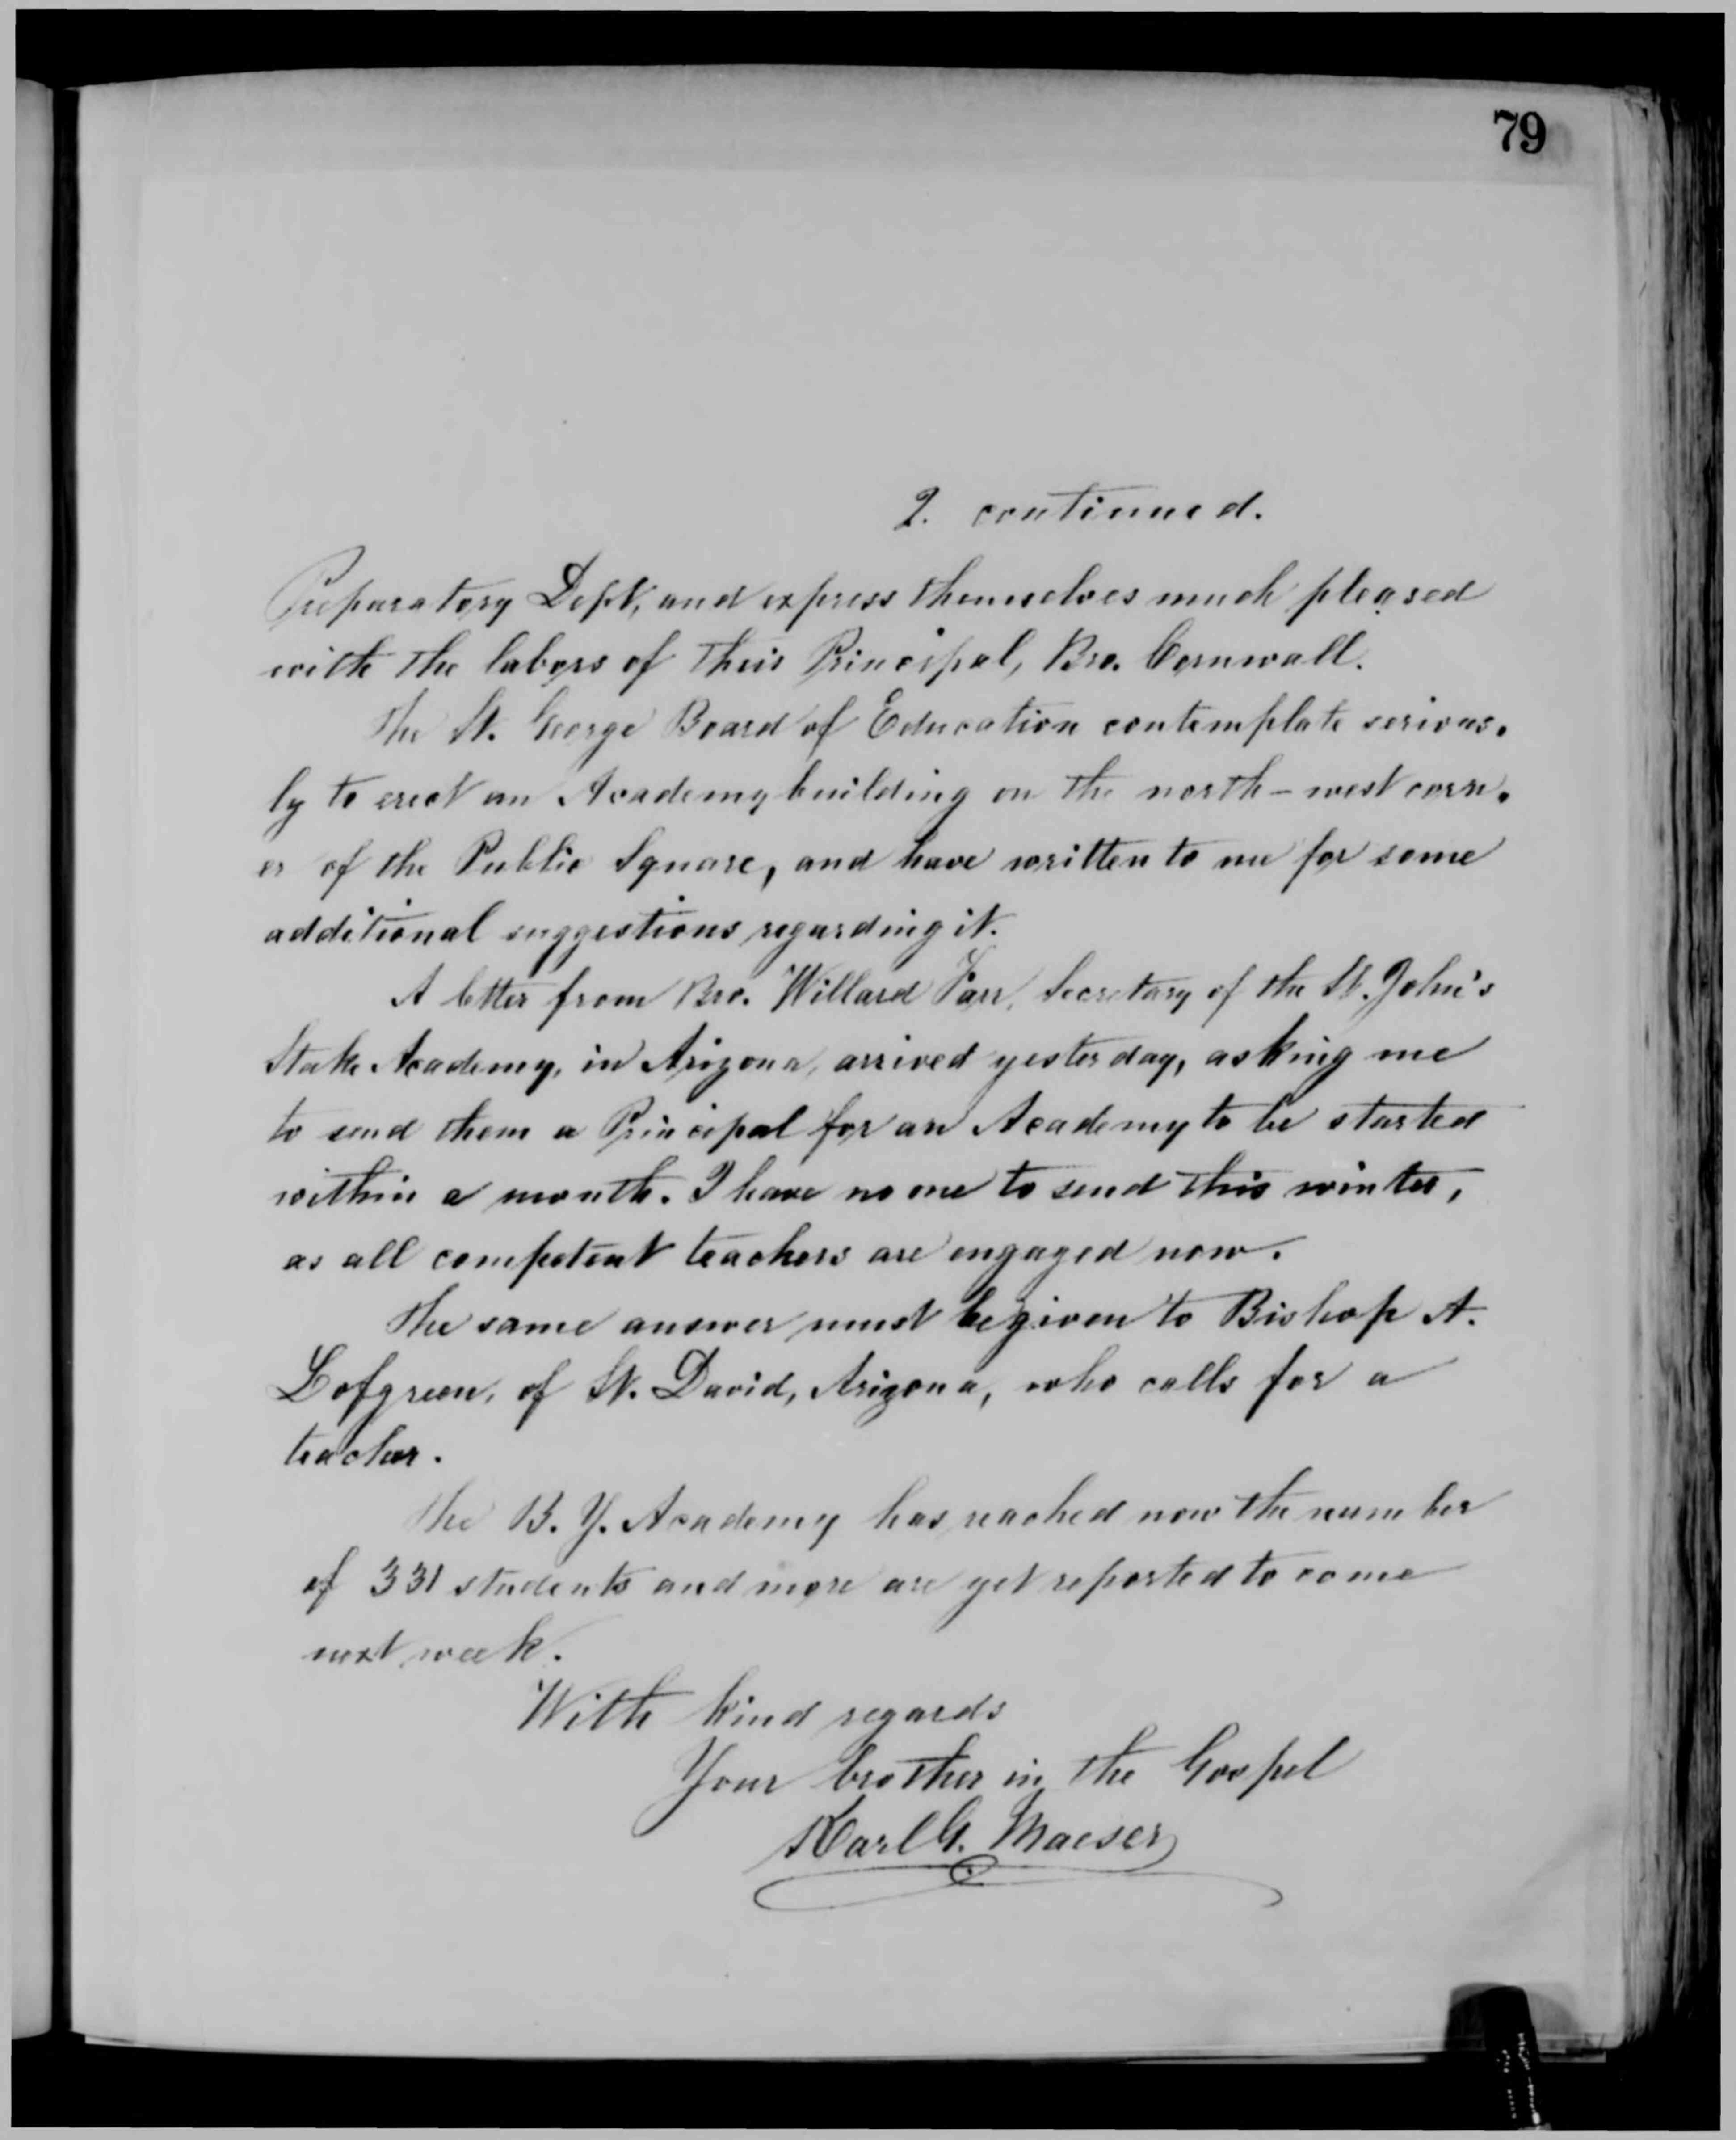 79
2. continued.
Preparatory Dept, and express themselves much pleased
with the labors of their Principal, Bro. Cornwall.
The St. George Board of Education contemplate serious-
ly to erect an Academy building on the north-west corn-
er of the Public Square, and have written to me for some
additional suggestions regarding it.
A letter from Bro. Willard Farr, Secretary of the St. John's
Stake Academy, in Arizona, arrived yesterday, asking me
to send them a Principal for an Academy to be started
within a month. I have no one to send this winter,
as all competent teachers are engaged now.
The same answer must be given to Bishop A.
Lofgreen, of St. David, Arizona, who calls for a
teacher.
The B. Y. Academy has reached now the number
of 331 students and more are yet reported to come
next week.
With kind regards
Your brother in the Gospel
Karl G. Maeser